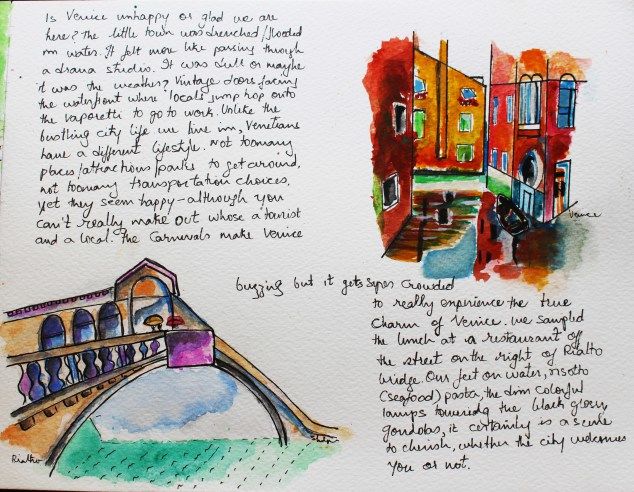 Is Venice unhappy or glad we are
here? The little town was drenched/flooded
in water. It felt more like passing through
a drama studio. It was dull or maybe
it was the weather? Vintage doors facing
the waterfront where 'locals' jump hop onto
the vaporetti to go to work. Unlike the
bustling city life we live in, Venetians
have a different lifestyle. Not too many
places/attractions/parks to get around,
not too many transportation choices,
yet they seem happy - although you
can't really make out whose a tourist
and a local. The Carnivals make Venice
buzzing but it gets super crowded
to really experience the true
charm of Venice. We sampled
the lunch at a restaurant off
the street on the right of Rialto
bridge. Our feet on water, risotto
(seafood) pasta, the dim colorful
lamps towering the black glossy
gondolas, it certainly is a scene
to cherish, whether the city welcomes
you or not.
Venice
Rialto